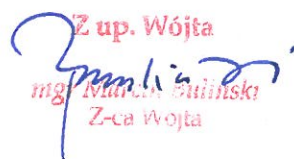 Z up. Wójta
mgr Marcin Buliński
Z-ca Wójta